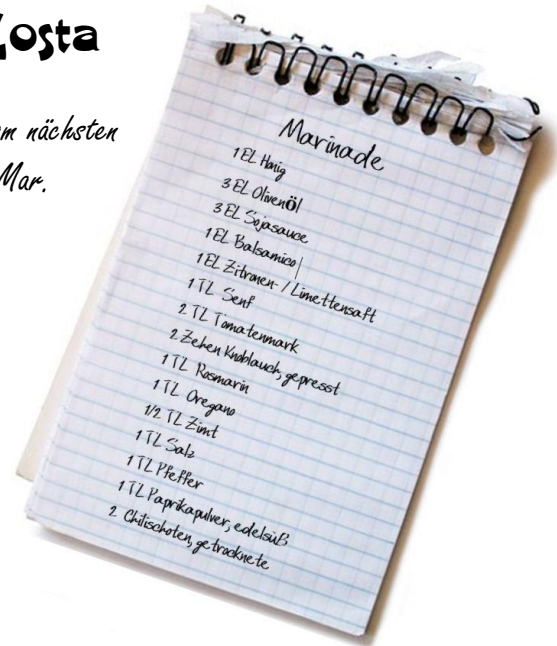 Losta
m nächsten
Mar.
Marinade
1 EL Honig
3 EL Olivenöl
3 EL Sojasauce
1 EL Balsamico
1 EL Zitronen- / Limettensaft
1 TL Senf
2 TL Tomatenmark
2 Zehen Knoblauch, gepresst
1 TL Rosmarin
1 TL Oregano
1/2 TL Zimt
1 TL Salz
1 TL Pfeffer
1 TL Paprikapulver, edelsüß
2 Chilischoten, getrocknete